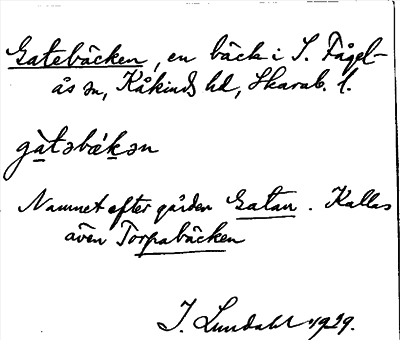 Gatebäcken, en bäck i S. Fågel-
ås sn, Kåkinds hd, Skarab. l.
gàtəbækən
Namnet efter gården Gatan. Kallas
även Torpabäcken
I. Lundahl 1929.